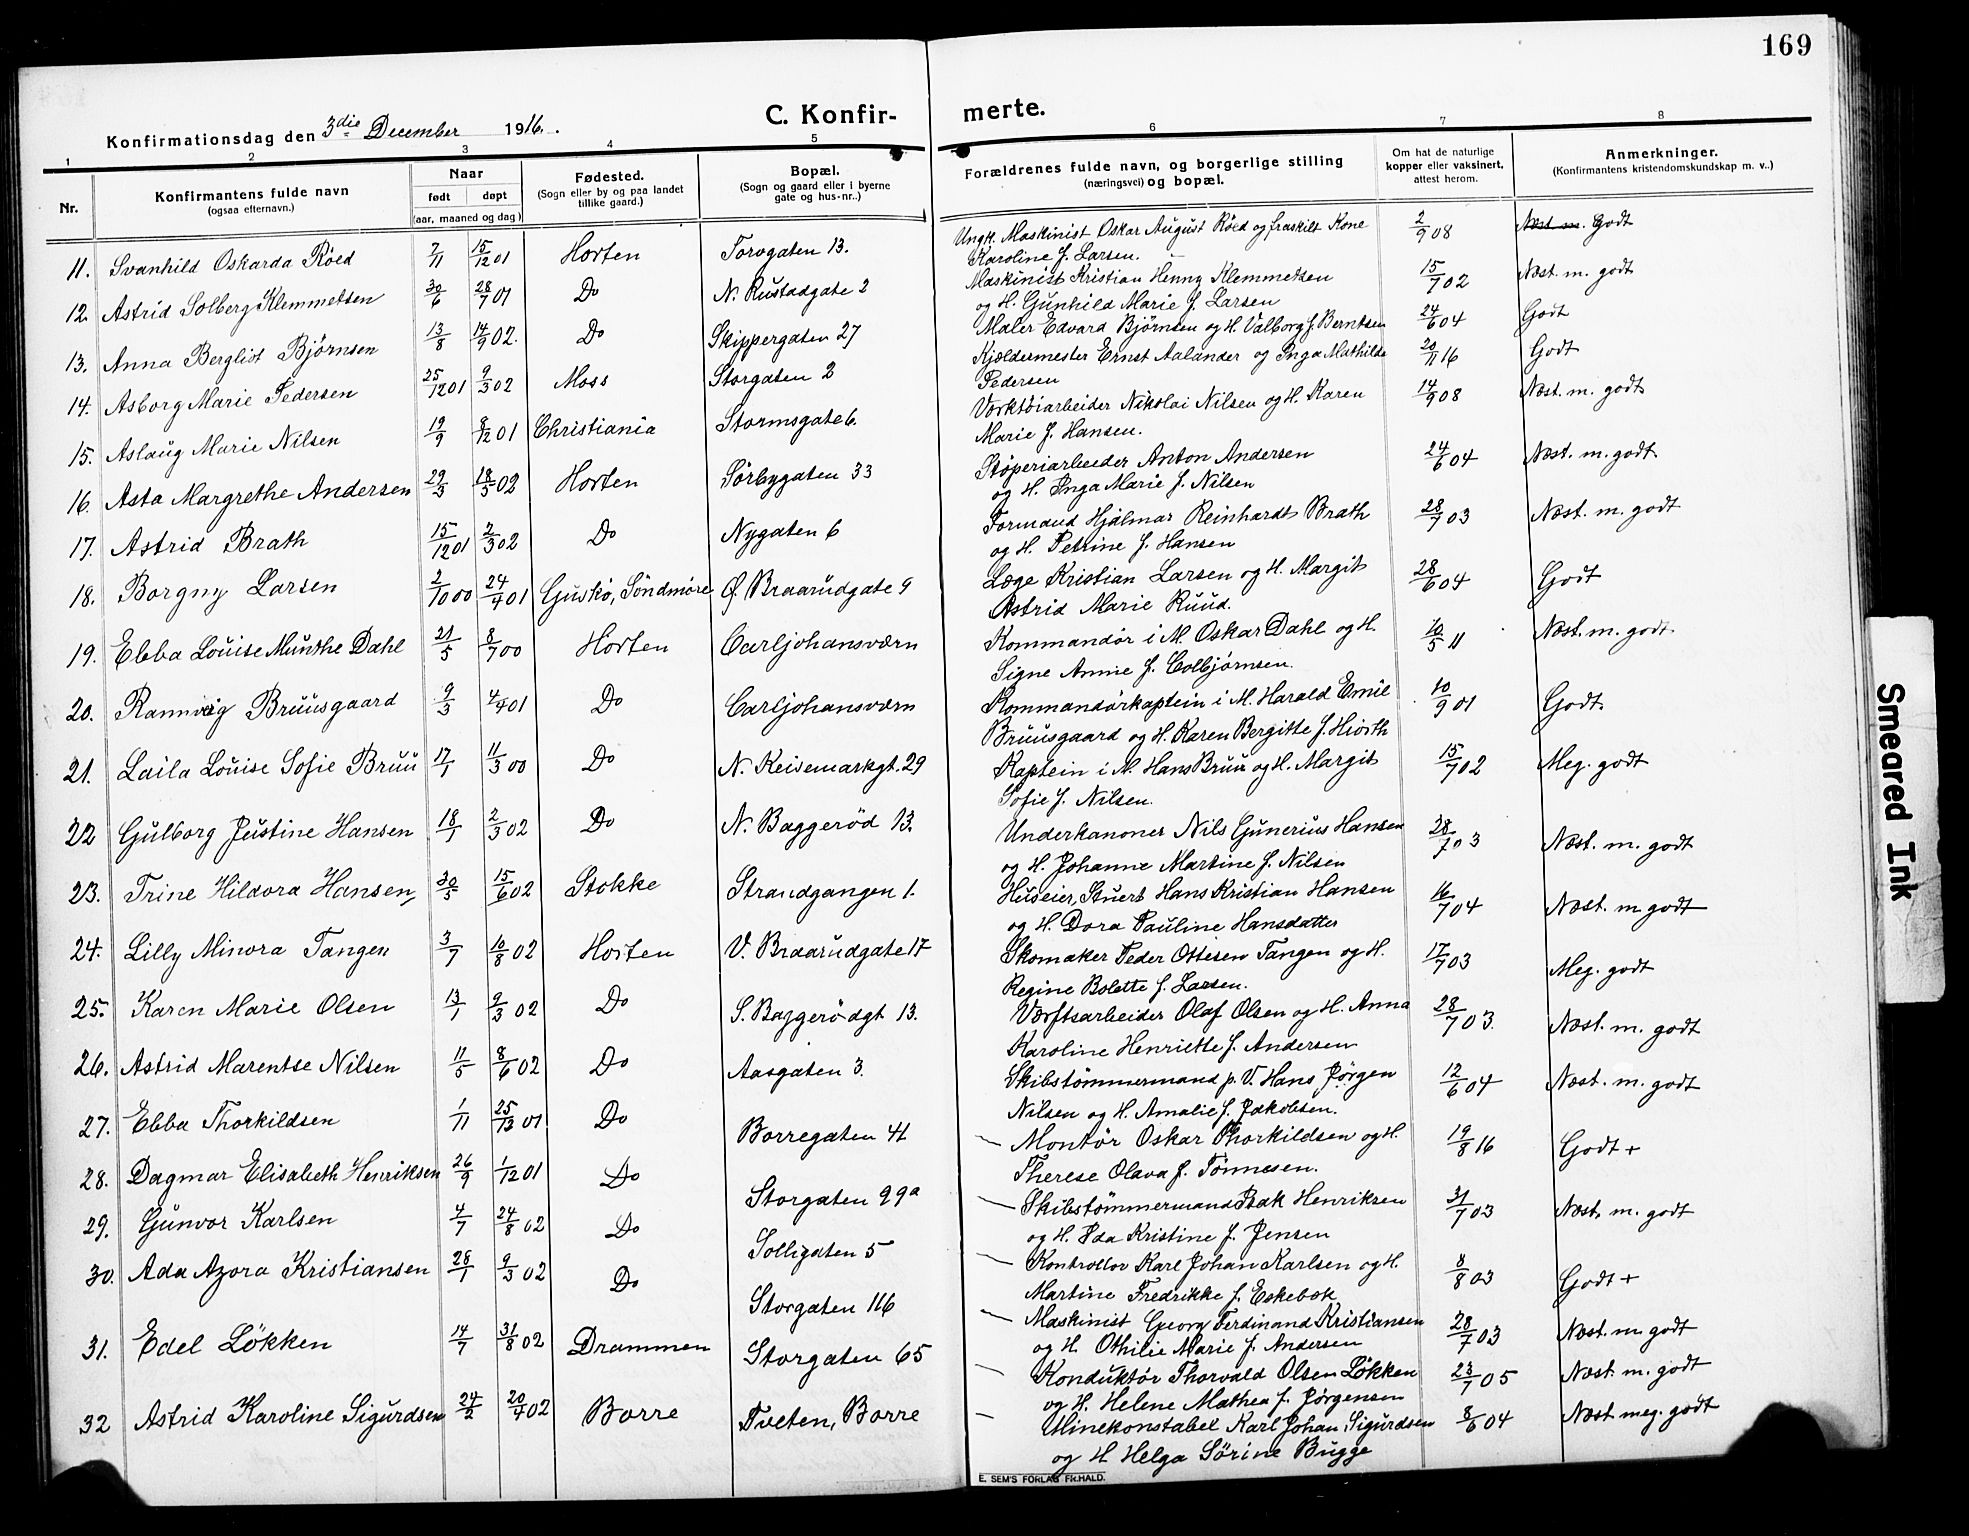 169
Konfirmationsdag den 3die December 1916.
C. Konfir-
merte.
1 2 3 4 5 6 7 8
Nr.
Konfirmantens fulde navn
(ogsaa efternavn.)
Naar
født døpt
(aar, maaned og dag)
Fødested.
(Sogn eller by og paa landet
tillike gaard.)
Bopæl.
(Sogn og gaard eller i byerne
gate og hus-nr..)
Forældrenes fulde navn, og borgerlige stilling
(næringsvei) og bopæl.
Om hat de naturlige
kopper eller vaksinert,
attest herom.
Anmerkninger.
(Konfirmantens kristendomskundskap m. v..)
11. Svanhild Oskarda Röed 7/11 15/12 01 Horten Torvgaten 13. Ungk. Maskinist Oskar August Röed og fraskilt Kone 2/9 08 Næst m. Godt
Karoline f. Larsen.
12. Astrid Solberg Klemmetsen 30/6 28/7 01 Do N. Rustadgate 2 Maskinist Kristian Henny Klemmetsen 15/7 02 Næst. m. godt
og H. Gunhild Marie f. Larsen
13. Anna Bergliot Bjørnsen 13/8 14/9 02. Do Skippergaten 27 Maler Edvard Bjørnsen og H. Valborg f. Berntsen 24/6 04 Godt
14. Asborg Marie Pedersen 25/12 01 9/3 02 Moss Storgaten 2 Kjældermester Ernst Aalander og Inga Mathilde 20/11 16 Godt
Pedersen
15. Aslaug Marie Nilsen 19/9 8/12 01 Christiania Stormsgate 6. Værktöiarbeider Nikolai Nilsen og H. Karen 14/9 08 Næst. m. godt
Marie f. Hansen.
16. Asta Margrethe Andersen 29/3 18/5 02 Horten Sörbygaten 33 Støperiarbeider Anton Andersen 24/6 04 Næst. m. godt
og H. Inga Marie f. Nilsen
17. Astrid Brath 15/12 01 2/3 02 Do Nygaten 6 Formand Hjalmar Reinhardt Brath 28/7 03 Næst. m. godt
og H. Petrine f. Hansen
18. Borgny Larsen 2/10 00 24/4 01 Guskö, Söndmöre Ø. Braarudgate 9 Læge Kristian Larsen og H. Margit 28/6 04 Godt
Astrid Marie Ruud.
19. Ebba Louise Munthe Dahl 21/5 8/7 00 Horten Carljohansværn Kommandör i M. Oskar Dahl og H. 10/5 11 Næst. m. godt
Signe Annie f. Colbjörnsen.
20. Rannveig Bruusgaard 9/3 4/4 01 Do Carljohansværn Kommandörkaptein i M. Harald Emil 10/9 01 Godt.
Bruusgaard og H. Karen Bergitte f. Hiorth
21. Laila Louise Sofie Bruu 17/1 11/3 00 Do N. Keisemarkgt. 29 Kaptein i M. Hans Bruu og H. Margit 15/7 02 Meg. godt
Sofie f. Nilsen.
22 Gulborg Justine Hansen 18/1 2/3 02 Do N. Baggeröd 13. Underkanoner Nils Gunerius Hansen 28/7 03 Næst. m. godt
og H. Johanne Martine f. Nilsen
23. Trine Hildora Hansen, 30/5 15/6 02 Stokke Strandgangen 1. Huseier, Stuert Hans Kristian Hansen 16/7 04 Næst. m godt
og H. Dora Pauline Hansdatter
24. Lilly Minora Tangen 3/7 10/8 02 Horten V. Braarudgate 17 Skomaker Peder Ottesen Tangen og H. 17/7 03 Meg. godt
Regine Bolette f. Larsen.
25. Karen Marie Olsen 13/1 9/3 02 Do S. Baggerödgt 13. Værftsarbeider Olaf Olsen og H. Anna 28/7 03. Næst. m. godt
Karoline Henriette f. Andersen
26. Astrid Marentse Nilsen 11/5 8/6 02 Do Aasgaten 3. Skibstömmermand p. V. Hans Jørgen 12/6 04 Næst. m. godt
Nilsen og H. Amalie f. Jakobsen.
27. Ebba Thorkildsen 1/11 25/12 01 Do Borregaten 41 Montör Oskar Thorkildsen og H. 19/8 16 Godt +
Therese Olava f. Tönnesen.
28. Dagmar Elisabeth Henriksen 26/9 1/12 01 Do Storgaten 99a Skibstömmermand Isak Henriksen 31/7 03 Næst. m. godt
og H. Ida Kristine f. Jensen
29. Gunvor Karlsen 4/7 24/8 02 Do Solligaten 5 Kontrollör Karl Johan Karlsen og H. 8/8 03 Godt +
Martine Fredrikke f. Eskebæk
30. Ada Azora Kristiansen 28/1 9/3 02 Do Storgaten 116 Maskinist Georg Ferdinand Kristiansen 28/7 03 Næst. m. godt
og H. Othilie Marie f. Andersen
31. Edel Lökken 14/7 31/8 02 Drammen Storgaten 65 Konduktör Thorvald Olsen Lökken 23/7 05 Næst. m. godt
og H. Helene Mathea f. Jørgensen
32 Astrid Karoline Sigurdsen 24/2 20/4 02 Borre Tveten, Borre Minekonstabel Karl Johan Sigurdsen 8/6 04 Næst meg. godt
og H Helga Sörine Bugge
E. SEM'S FORLAG FR.HALD.
Smeared Ink